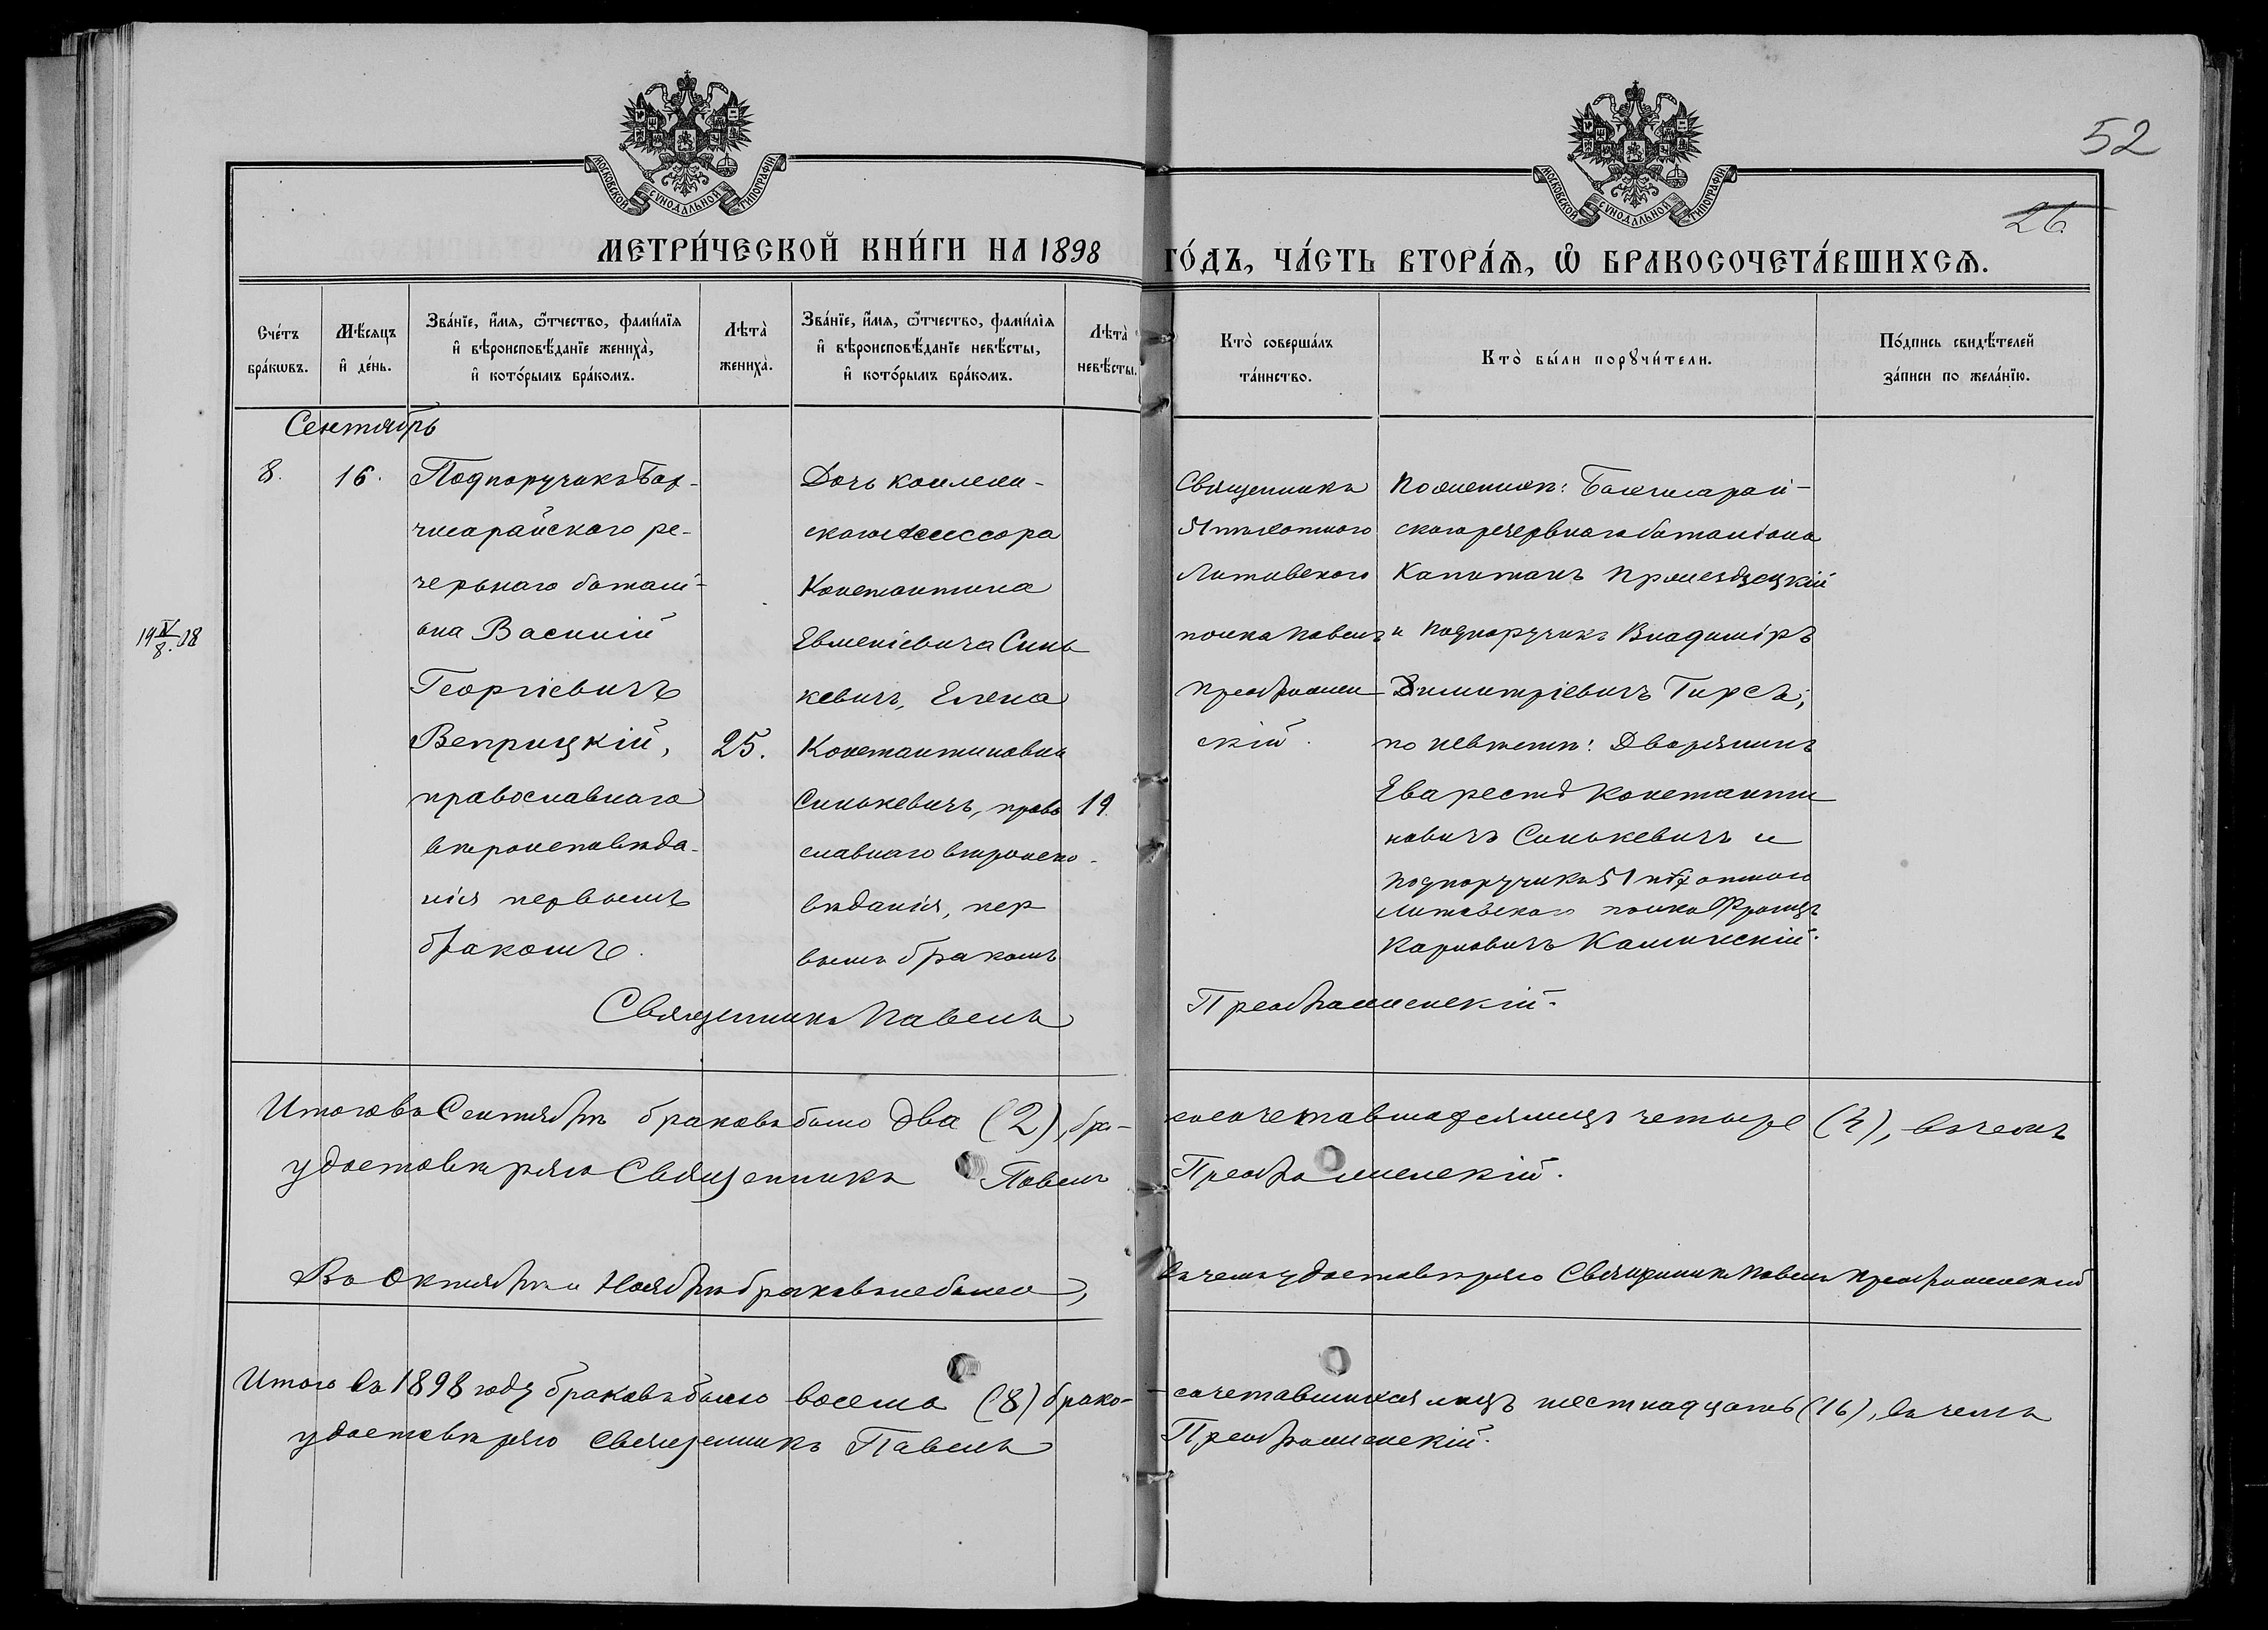 МОСКОВСКОЙ СѴНОДАЛЬНОЙ ТИПОГРАФІИ
МОСКОВСКОЙ СѴНОДАЛЬНОЙ ТИПОГРАФІИ
52
26
МЕТРИ́ЧЕСКОЙ КНИ́ГИ НА 1898 ГО́ДЪ, ЧА́СТЬ ВТОРА́Ѧ, Ѽ БРАКОСОЧЕТА́ВШИХСѦ.
Сче́тъ
бра́кѡвъ.
Мѣ́сяцъ
и҆ де́нь.
Зва́нїе, и҆́мя, ѻ҆́тчество, фами́лїя
и҆ вѣроисповѣ́данїе жениха̀,
и҆ кото́рымъ бра́комъ.
Лѣта̀
жениха̀.
Зва́нїе, и҆́мя, ѻ҆́тчество, фами́лїя
и҆ вѣроисповѣ́данїе невѣ́сты,
и҆ кото́рымъ бра́комъ.
Лѣта̀
невѣ́сты.
Кто̀ соверша́лъ
та́инство.
Кто̀ бы́ли порꙋчи́тели.
По́дпись свидѣ́телей
за́писи по жела́нїю.
Сентябрь
8.
16.
Подпоручикъ Бах-
чисарайскаго ре-
зервнаго баталі-
она Василій
Георгіевичъ
Веприцкій,
православнаго
вѣроисповѣда-
нія первымъ
бракомъ.
25.
Дочь коллеж-
скаго Ассессора
Константина
Евменіевича Синь
кевичъ, Елена
Константиновна
Синькевичъ, право
славнаго вѣроиспо-
вѣданія, пер
вымъ бракомъ
19.
Священникъ
51 пѣхотнаго
Литовскаго
полка Павелъ
Преображен
скій.
По женихѣ: Бахчисарай-
скаго резервнаго баталіона
Капитанъ
и Подпоручикъ Владиміръ
Димитріевичъ Гирсъ;
по невѣстѣ: Дворянинъ
Еварестъ Константи
новичъ Синькевичъ и
подпоручикъ 51 пѣхотнаго
Литовскаго полка Францъ
Карловичъ Каминскій.
19 IV/8. 18
Священникъ Павелъ Преображенскій.
Итого въ Сентябрѣ браковъ было два (2), бра-
косочетавшихся лицъ четыре (4), въ чемъ
удостовѣряю Священникъ Павелъ Преображенскій.
Въ Октябрѣ и Ноябрѣ браковъ не было, въ чемъ удостовѣряю Священникъ Павелъ Преображенскій
Итого въ 1898 году браковъ было восемь (8) брако-
сочетавшихся лицъ шестнадцать (16), въ чемъ
удостовѣряю Священникъ Павелъ Преображенскій.